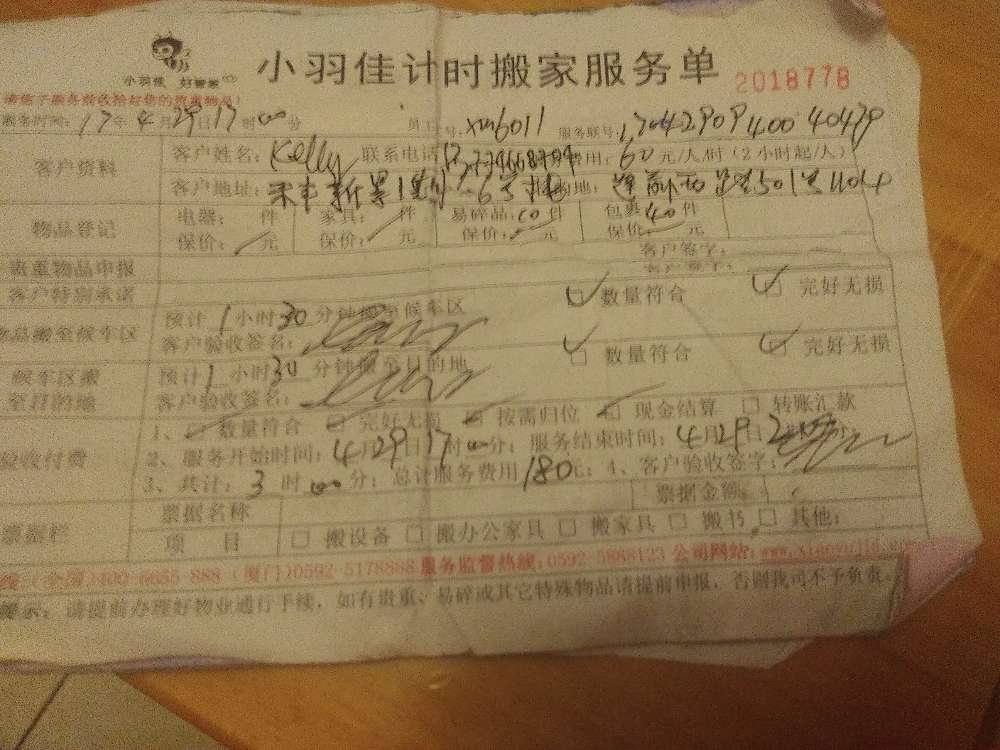 小羽佳 好管家
小羽佳计时搬家服务单
2018778
请您于服务前收拾好您的贵重物品)
服务时间：17年4月29日17时00分 号：xm6011 服务联号：
客户资料
客户姓名：Kelly 联系电话 费用：60元/人/时（2小时起/人）
客户地址：
物品登记
电器： 件 家具： 件 易碎品：10件 包裹：40件
保价： 元 保价： 元 保价： 元 保价： 元
贵重物品申报
客户签字：
客户特别承诺
客户签字：
物品搬至候车区
预计1小时30分钟搬至候车区 数量符合 完好无损
客户验收签名：
候车区搬
至目的地
预计1小时30分钟搬至目的地 数量符合 完好无损
客户验收签名：
验收付费
1、 数量符合 完好无损 按需归位 现金结算 转账汇款
2、服务开始时间：4月29日17时00分；服务结束时间：4月29日
3、共计：3时00分；总计服务费用180元；4、客户验收签字：
票据栏
票据名称 票据金额：
项 目 搬设备 搬办公家具 搬家具 搬书 其他：
线（全国）400-6655-888（厦门）0592-5178888 服务监督热线：0592-5888123 公司网站：
提示：请提前办理好物业通行手续，如有贵重、易碎或其它特殊物品请提前申报，否则我司不予负责。